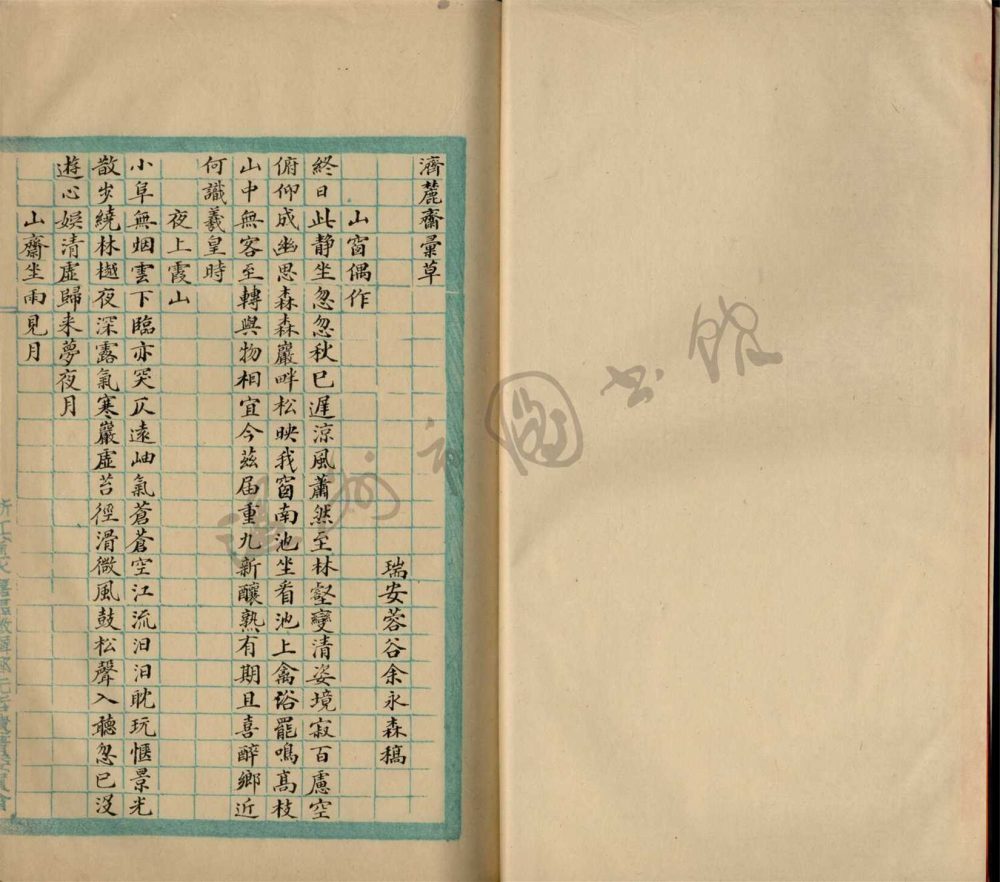 濟麓齋彙草
瑞安蓉谷余永森稿
山窗偶作
終日此静坐忽忽秋已遲涼風蕭然至林壑變清姿境寂百慮空
俯仰成幽思森森巖畔松映我窗南池坐看池上禽浴罷鳴高枝
山中無客至轉與物相宜今茲届重九新釀熟有期且喜醉鄉近
何識羲皇時
夜上霞山
小阜無烟雲下臨亦突仄遠岫氣蒼蒼空江流汩汩耽玩愜景光
散步繞林樾夜深露氣寒巖虛苔徑滑微風鼓松聲入聽忽已没
遊心娛清虛歸来夢夜月
山齋坐雨見月
温州市圖书館